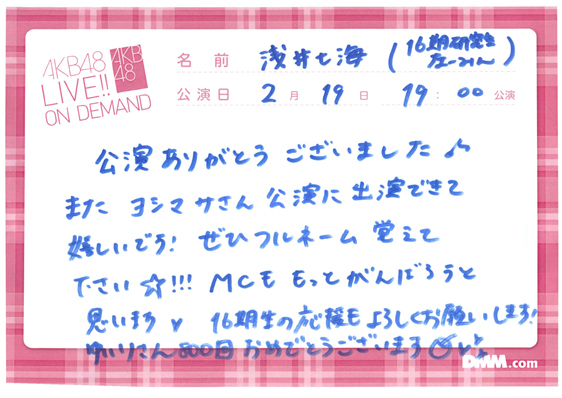 AKB48
LIVE!!
ON DEMAND
AKB
48
名前 浅井七海 (16期研究生 なーみん)
公演日 2月 19日 19:00 公演
公演 ありがとう ございました♪
また ヨシマサさん 公演に 出演できて
嬉しいです! ぜひ フルネーム 覚えて
下さい ☆!!! MCも もっと がんばろうと
思います ♥ 16期生の応援も よろしくお願いします!
ゆいりさん 800回 おめでとうございます
DMM.com